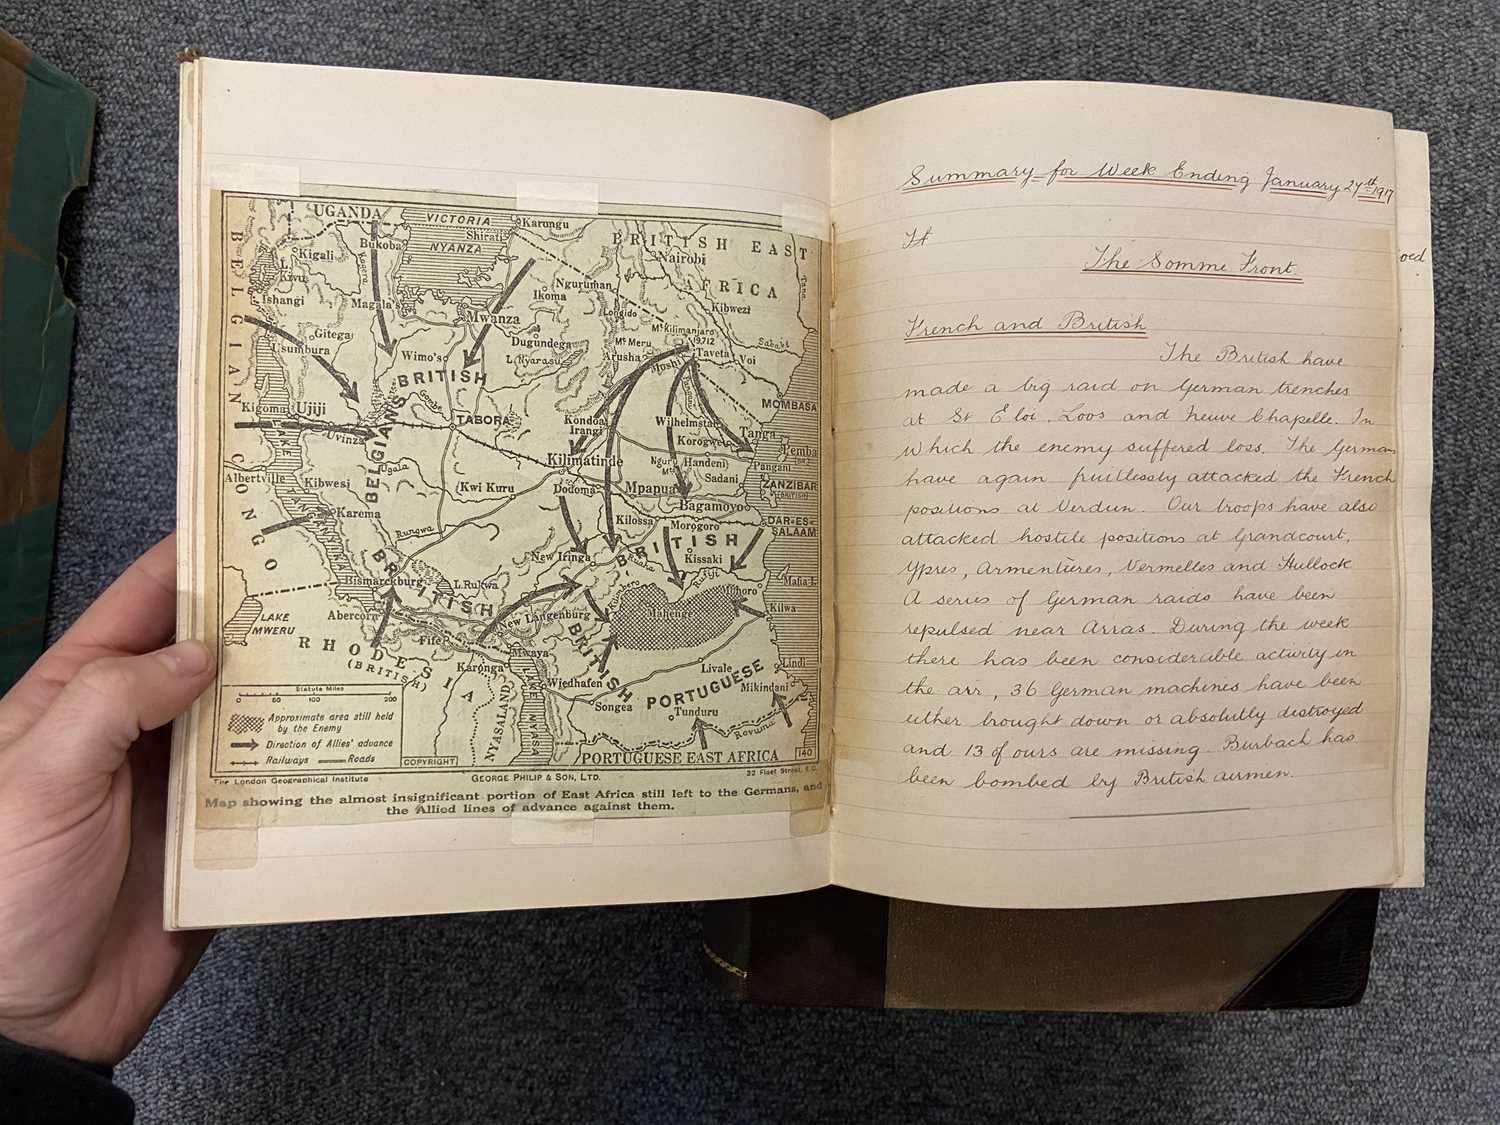 UGANDA
VICTORIA
NYANZA
Karungu
Shirati
Bukoba
BRITISH EAST
AFRICA
Nairobi
Kigali
L. Kivu
Ishangi
Magala's
Mwanza
Ikoma
Nguruman
Longido
Kibwezi
Tana
BELGIAN CONGO
Gitega
Usumbura
Wimo's
Dugundega
L. Nyarasu
Mt Meru
Arusha
Mt Kilimanjaro
19712
Taveta
Voi
Sabaki
Moshi
BRITISH
BELGIANS
MOMBASA
Kigoma
Ujiji
Uvinza
Gombe
TABORA
Kondoa
Irangi
Wilhelmstal
Tanga
Korogwe
Pemba
Pangani
Ugala
Kilimatinde
Handeni
Sadani
ZANZIBAR
(BRITISH)
Albertville
Kibwesi
Kwi Kuru
Dodoma
Mpapua
Bagamoyo
Karema
LAKE TANGANYIKA
Rungwa
Kilossa
Morogoro
DAR-ES-
SALAAM
New Iringa
BRITISH
Kissaki
Ruaha
Bismarckburg
BRITISH
L. Rukwa
Rufiji
Mafia I.
Mohoro
Abercorn
Mahenge
Kilwa
LAKE
MWERU
New Langenburg
BRITISH
Fife
RHODESIA
(BRITISH)
Karonga
Mwaya
Livale
Lindi
Wiedhafen
PORTUGUESE
Mikindani
NYASALAND
LAKE NYASSA
Songea
Tunduru
Rovuma
Statute Miles
0 50 100 200
Approximate area still held
by the Enemy
Direction of Allies' advance
Railways Roads
COPYRIGHT
PORTUGUESE EAST AFRICA
140
The London Geographical Institute
GEORGE PHILIP & SON, LTD.
32 Fleet Street, E.C.
Map showing the almost insignificant portion of East Africa still left to the Germans, and
the Allied lines of advance against them.
Summary for Week Ending January 27th 1917
The Somme Front.
French and British
The British have
made a big raid on German trenches
at St Eloi, Loos and Neuve Chapelle. In
which the enemy suffered loss. The German
have again fruitlessly attacked the French
positions at Verdun. Our troops have also
attacked hostile positions at Grandcourt,
Ypres, Armentières, Vermelles and Hullock
A series of German raids have been
repulsed near Arras. During the week
there has been considerable activity in
the air, 36 German machines have been
either brought down or absolutly distroyed
and 13 of ours are missing. Burbach has
been bombed by British airmen.